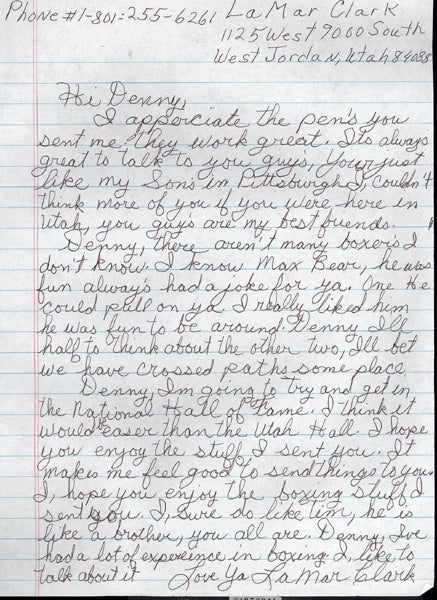 Phone #1-801-255-6261 LaMar Clark
1125 West 9000 South
West Jordan, Utah 84088
Hi Denny,
I apporciate the pen's you
sent me, they work great. Its always
great to talk to you guy's, Your just
like my Son's in Pittsburgh I, couldn't
think more of you if you were here in
Utah, you guy's are my best friends.
Denny, there aren't many boxers I
don't know. I know Max Bear, he was
fun always had a joke for ya. One He
could pull on ya. I really liked him
he was fun to be around. Denny I'll
half to think about the other two, I'll bet
we have crossed paths some place,
Denny, I'm going to try and get in
the National Hall of Fame. I think it
would be easer than the Utah Hall. I hope
you enjoy the stuff I sent you. It
makes me feel good to send things to you.
I, hope you enjoy the boxing stuff I
sent you. I, sure do like Tim, he is
like a brother, you all are. Denny, I've
had a lot of experience in boxing I, like to
talk about it Love Ya LaMar Clark